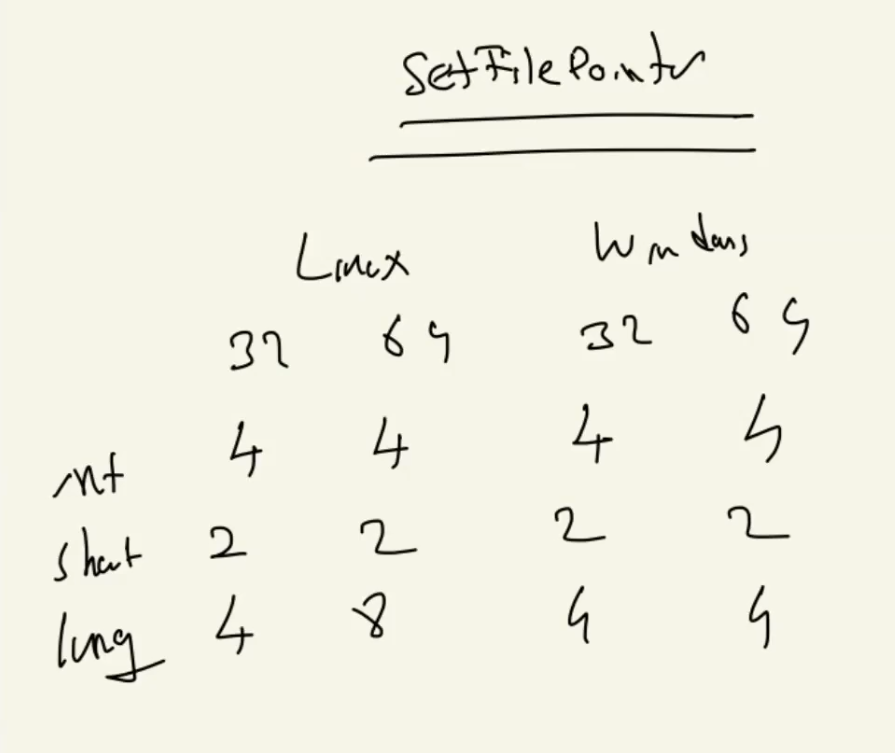 SetFilePointer
Linux Windows
32 64 32 64
int 4 4 4 4
short 2 2 2 2
long 4 8 4 4